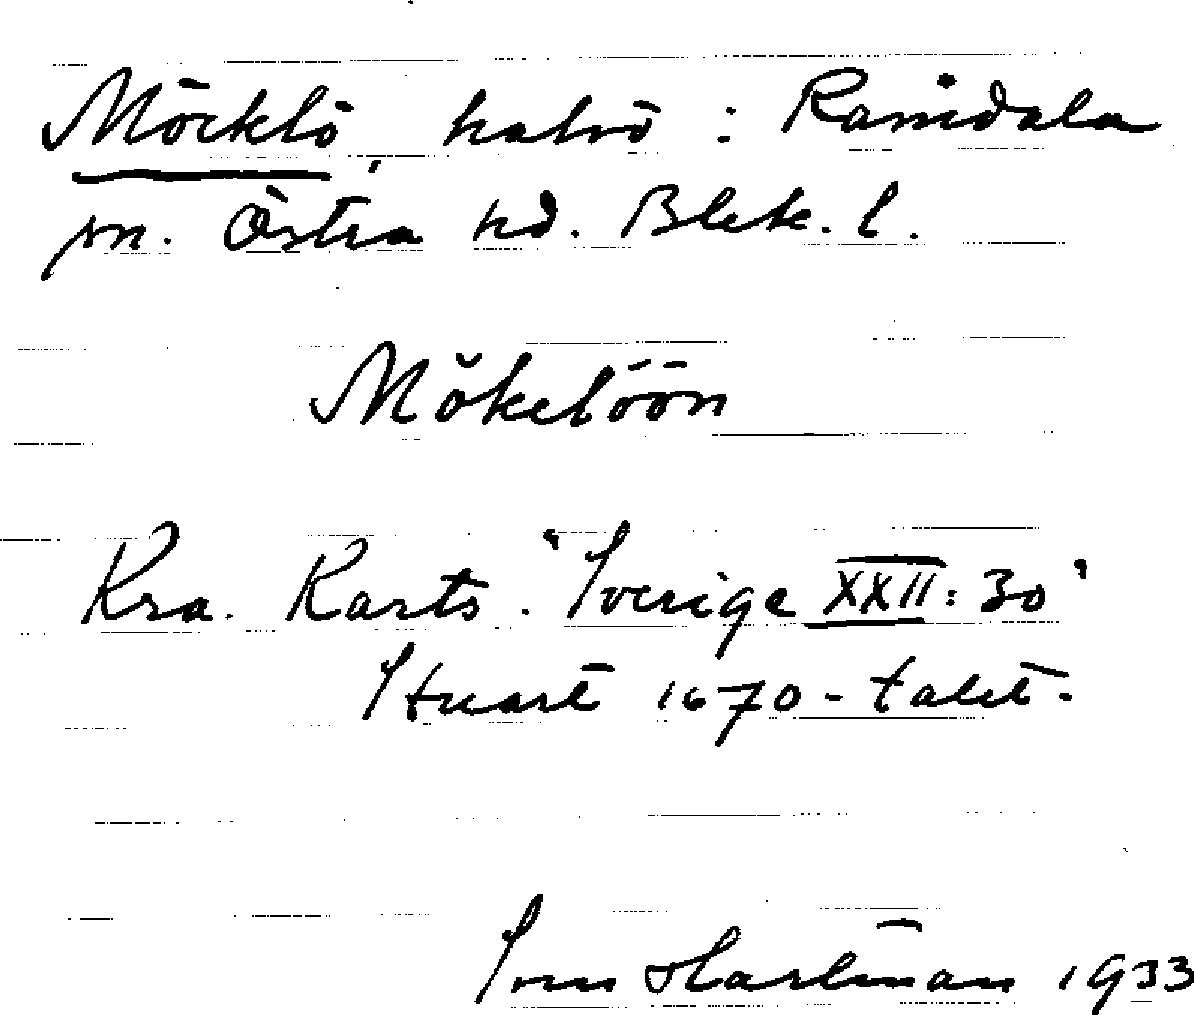 Möcklö, halvö : Ramdala
sn. Östra hd. Blek. l.
Mökelöön
Kra. Karts. "Sverige XXII: 30"
Stuart 1670-talet.
Sven Hartman 1933